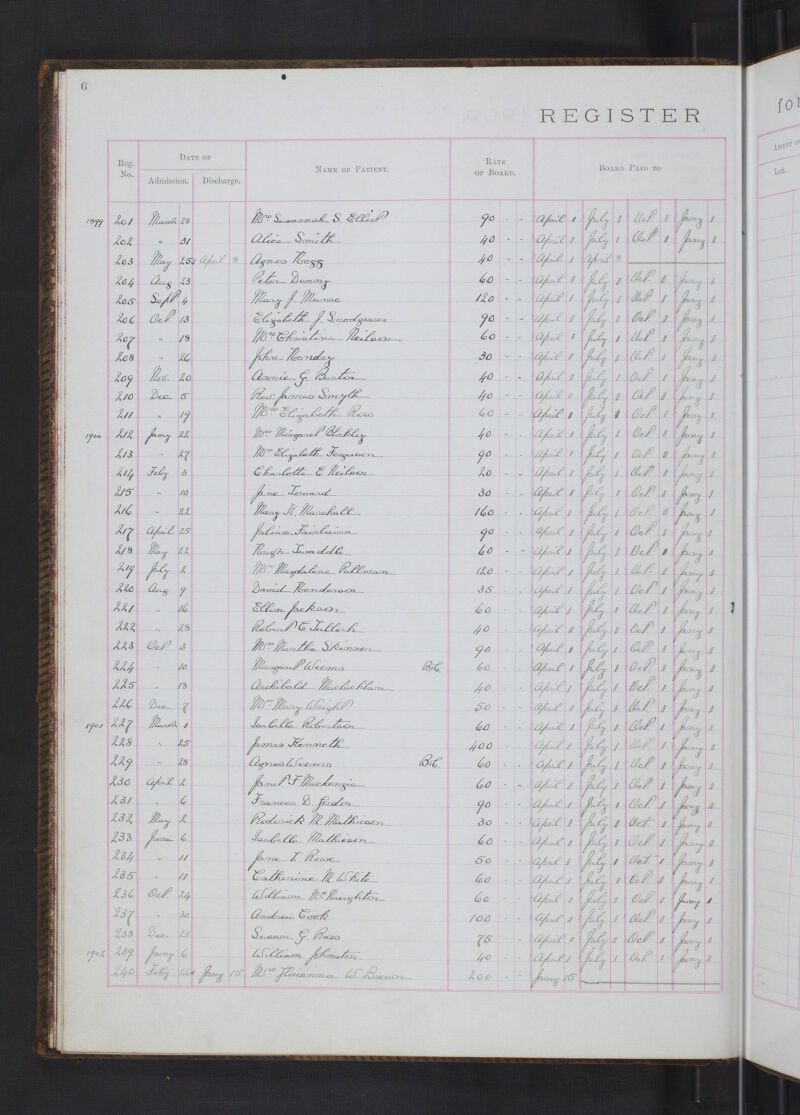 6
REGISTER
for
Reg. No. DATE OF Admission. Discharge. NAME OF PATIENT. RATE OF BOARD. BOARD PAID TO
Left.
1899 201 March 25 Mrs Susannah S. Elliot 90 - - April 1 July 1 Oct 1 Jany 1
202 " 31 Alice Smith 40 - - April 1 July 1 Oct 1 Jany 1
203 May 25 April 8 Agnes Hogg 40 - - April 1 April 8
204 Aug 23 Peter Denny 60 - - April 1 July 1 Oct 1 Jany 1
205 Sept 4 Mary J. Munro 120 - - April 1 July 1 Oct 1 Jany 1
206 Oct 13 Elizabeth J. Snodgrass 90 - - April 1 July 1 Oct 1 Jany 1
207 " 18 Mrs Christina Neilson 60 - - April 1 July 1 Oct 1 Jany 1
208 " 26 John Hendry 30 - - April 1 July 1 Oct 1 Jany 1
209 Nov. 20 Annie G. Barton 40 - - April 1 July 1 Oct 1 Jany 1
210 Dec 5 Rev. James Smyth 40 - - April 1 July 1 Oct 1 Jany 1
211 " 19 Mrs Elizabeth Ross 60 - - April 1 July 1 Oct 1 Jany 1
1900 212 Jany 22 Mrs Margaret Bleckley 40 - - April 1 July 1 Oct 1 Jany 1
213 " 27 Mrs Elizabeth Ferguson 90 - - April 1 July 1 Oct 1 Jany 1
214 Feby 3 Charlotte E Neilson 20 - - April 1 July 1 Oct 1 Jany 1
215 " 10 Jane Toward 30 - - April 1 July 1 Oct 1 Jany 1
216 " 22 Mary H. Marshall 160 - - April 1 July 1 Oct 1 Jany 1
217 April 25 Julian Fairbairn 90 - - April 1 July 1 Oct 1 Jany 1
218 May 22 Hugh Twaddle 60 - - April 1 July 1 Oct 1 Jany 1
219 July 2 Mrs Magdalene Pullman 120 - - April 1 July 1 Oct 1 Jany 1
220 Aug 9 David Henderson 35 - - April 1 July 1 Oct 1 Jany 1
221 " 16 Ellen Jackson 60 - - April 1 July 1 Oct 1 Jany 1
222 " 28 Robert C Tulloch 40 - - April 1 July 1 Oct 1 Jany 1
223 Oct 3 Mrs Martha Skinner 90 - - April 1 July 1 Oct 1 Jany 1
224 " 10 Margaret Weems 60 - - April 1 July 1 Oct 1 Jany 1
225 " 18 Archibald Maclachlan 40 - - April 1 July 1 Oct 1 Jany 1
226 Dec 7 Mrs Mary Wright 50 - - April 1 July 1 Oct 1 Jany 1
1901 227 March 1 Isabella Robertson 60 - - April 1 July 1 Oct 1 Jany 1
228 " 25 James Kenneth 400 - - April 1 July 1 Oct 1 Jany 1
229 " 28 Agnes Weems 60 - - April 1 July 1 Oct 1 Jany 1
230 April 2 Janet F Mackenzie 60 - - April 1 July 1 Oct 1 Jany 1
231 " 6 Frances D. Gordon 90 - - April 1 July 1 Oct 1 Jany 1
232 May 2 Roderick M. Mathieson 30 - - April 1 July 1 Oct 1 Jany 1
233 June 6 Isabella Mathieson 60 - - April 1 July 1 Oct 1 Jany 1
234 " 11 Jane L. Rowe 50 - - April 1 July 1 Oct 1 Jany 1
235 " 11 Catherine M. White 60 - - April 1 July 1 Oct 1 Jany 1
236 Oct 24 William McNaughton 60 - - April 1 July 1 Oct 1 Jany 1
237 " 30 Andrew Cook 100 - - April 1 July 1 Oct 1 Jany 1
238 Dec 23 Susan G. Ross 75 - - April 1 July 1 Oct 1 Jany 1
1902 239 Jany 6 William Johnston 40 - - April 1 July 1 Oct 1 Jany 1
240 Feby Jany 15 Mrs W. Brown 200 - - Jany 15